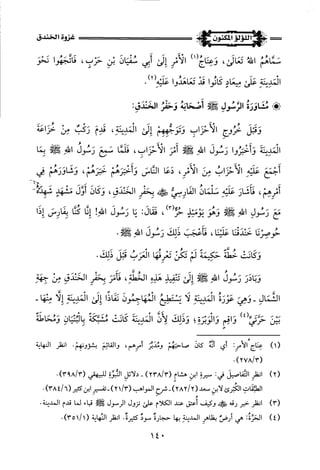 اللؤلؤ المكنون
غزوة الخندق
سَمَّاهُمُ اللهُ تَعَالَى، وَعِنَاجُ(١) الْأَمْرِ إِلَى أَبِي سُفْيَانَ بْنِ حَرْبٍ، فَاتَّجَهُوا نَحْوَ
الْمَدِينَةِ عَلَى مِيعَادٍ كَانُوا قَدْ تَعَاهَدُوا عَلَيْهِ(٢).
۞ مُشَاوَرَةُ الرَّسُولِ ﷺ أَصْحَابَهُ وَحَفْرُ الْخَنْدَقِ:
وَقَبْلَ خُرُوجِ الْأَحْزَابِ وَتَوَجُّهِهِمْ إِلَى الْمَدِينَةِ، قَدِمَ رَكْبٌ مِنْ خُزَاعَةَ
الْمَدِينَةَ وَأَخْبَرُوا رَسُولَ اللهِ ﷺ أَمْرَ الْأَحْزَابِ، فَلَمَّا سَمِعَ رَسُولُ اللهِ ﷺ بِمَا
أَجْمَعَ عَلَيْهِ الْأَحْزَابُ مِنَ الْأَمْرِ، دَعَا النَّاسَ وَأَخْبَرَهُمْ خَبَرَهُمْ، وَشَاوَرَهُمْ فِي
أَمْرِهِمْ، فَأَشَارَ عَلَيْهِ سَلْمَانُ الْفَارِسِيُّ ﷺ بِحَفْرِ الْخَنْدَقِ، وَكَانَ أَوَّلَ مَشْهَدٍ شَهِدَهُ
مَعَ رَسُولِ اللهِ ﷺ وَهُوَ يَوْمَئِذٍ حُرٌّ(٣)، فَقَالَ: يَا رَسُولَ اللهِ! إِنَّا كُنَّا بِفَارِسَ إِذَا
حُوصِرْنَا خَنْدَقْنَا عَلَيْنَا، فَأَعْجَبَ ذَلِكَ رَسُولَ اللهِ ﷺ.
وَكَانَتْ خُطَّةً حَكِيمَةً لَمْ تَكُنْ تَعْرِفُهَا الْعَرَبُ قَبْلَ ذَلِكَ.
وَبَادَرَ رَسُولُ اللهِ ﷺ إِلَى تَنْفِيذِ هَذِهِ الْخُطَّةِ، فَأَمَرَ بِحَفْرِ الْخَنْدَقِ مِنْ جِهَةِ
الشَّمَالِ - وَهِيَ عَوْرَةُ الْمَدِينَةِ لَا يَسْتَطِيعُ الْمُهَاجِمُونَ نَفَاذًا إِلَى الْمَدِينَةِ إِلَّا مِنْهَا -
بَيْنَ حَرَّتَيْ(٤) وَاقِمٍ وَالْوَبَرَةِ؛ وَذَلِكَ لِأَنَّ الْمَدِينَةَ كَانَتْ مُشَبَّكَةً بِالْبُنْيَانِ وَمُحَاطَةً
(١) عِنَاجُ الأمْرِ: أي أنَّه كانَ صاحبَهُم ومُدَبِّرَ أمرِهم، والقائِمَ بشؤونِهم. انظر النهاية
(٢٧٨/٣).
(٢) انظر التَّفاصيلَ في: سيرة ابن هشام (٢٣٨/٣) - دلائل النُّبوَّة للبيهقي (٣٩٨/٣) -
الطبَّقَات الكُبْرَى لابن سعد (٢٨٢/٢) - شرح المواهب (٢١/٣) - تفسير ابن كثير (٣٨٤/٦).
(٣) انظر خبر رقه ﷺ وكيف أُعتق عند الكلام على نزول الرسول ﷺ قباء لما قدم المدينة.
(٤) الحَرَّةُ: هي أرضٌ بظاهِرِ المدينةِ بها حجارة سودٌ كثيرةٌ. انظر النِّهاية (٣٥١/١).
١٤٠